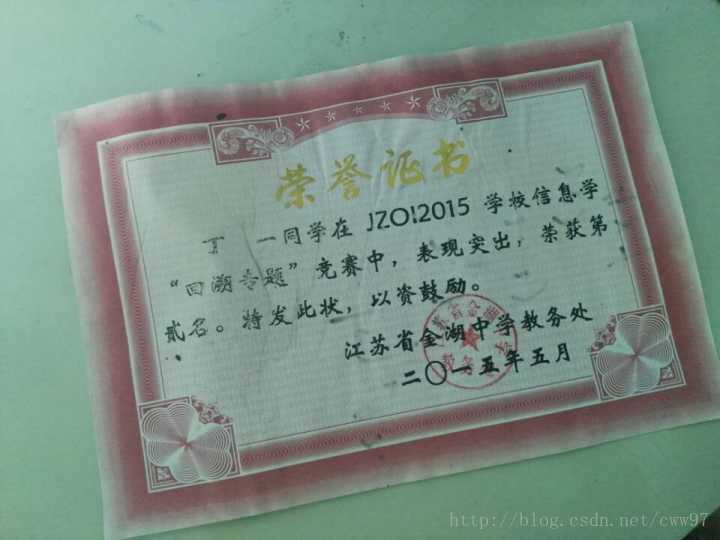 荣誉证书
一同学在 JZOI2015 学校信息学
“回溯专题”竞赛中，表现突出，荣获第
贰名。特发此状，以资鼓励。
江苏省金湖中学教务处
二〇一五年五月
http://blog.csdn.net/cww97